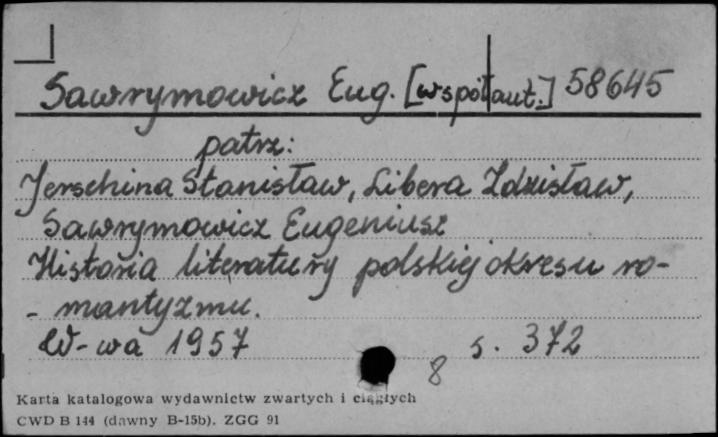 Sawrymowicz Eug. [współaut.] 58645
patrz:
Jerschina Stanisław, Libera Zdzisław,
Sawrymowicz Eugeniusz
Historia literatury polskiej okresu ro-
- mantyzmu.
W-wa 1957 s. 372
8
Karta katalogowa wydawnictw zwartych i ciągłych
CWD B 144 (dawny B-15b). ZGG 91